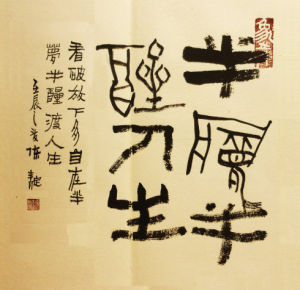 半夢半
醒人生
看破放下多自在半
夢半醒渡人生
壬辰之